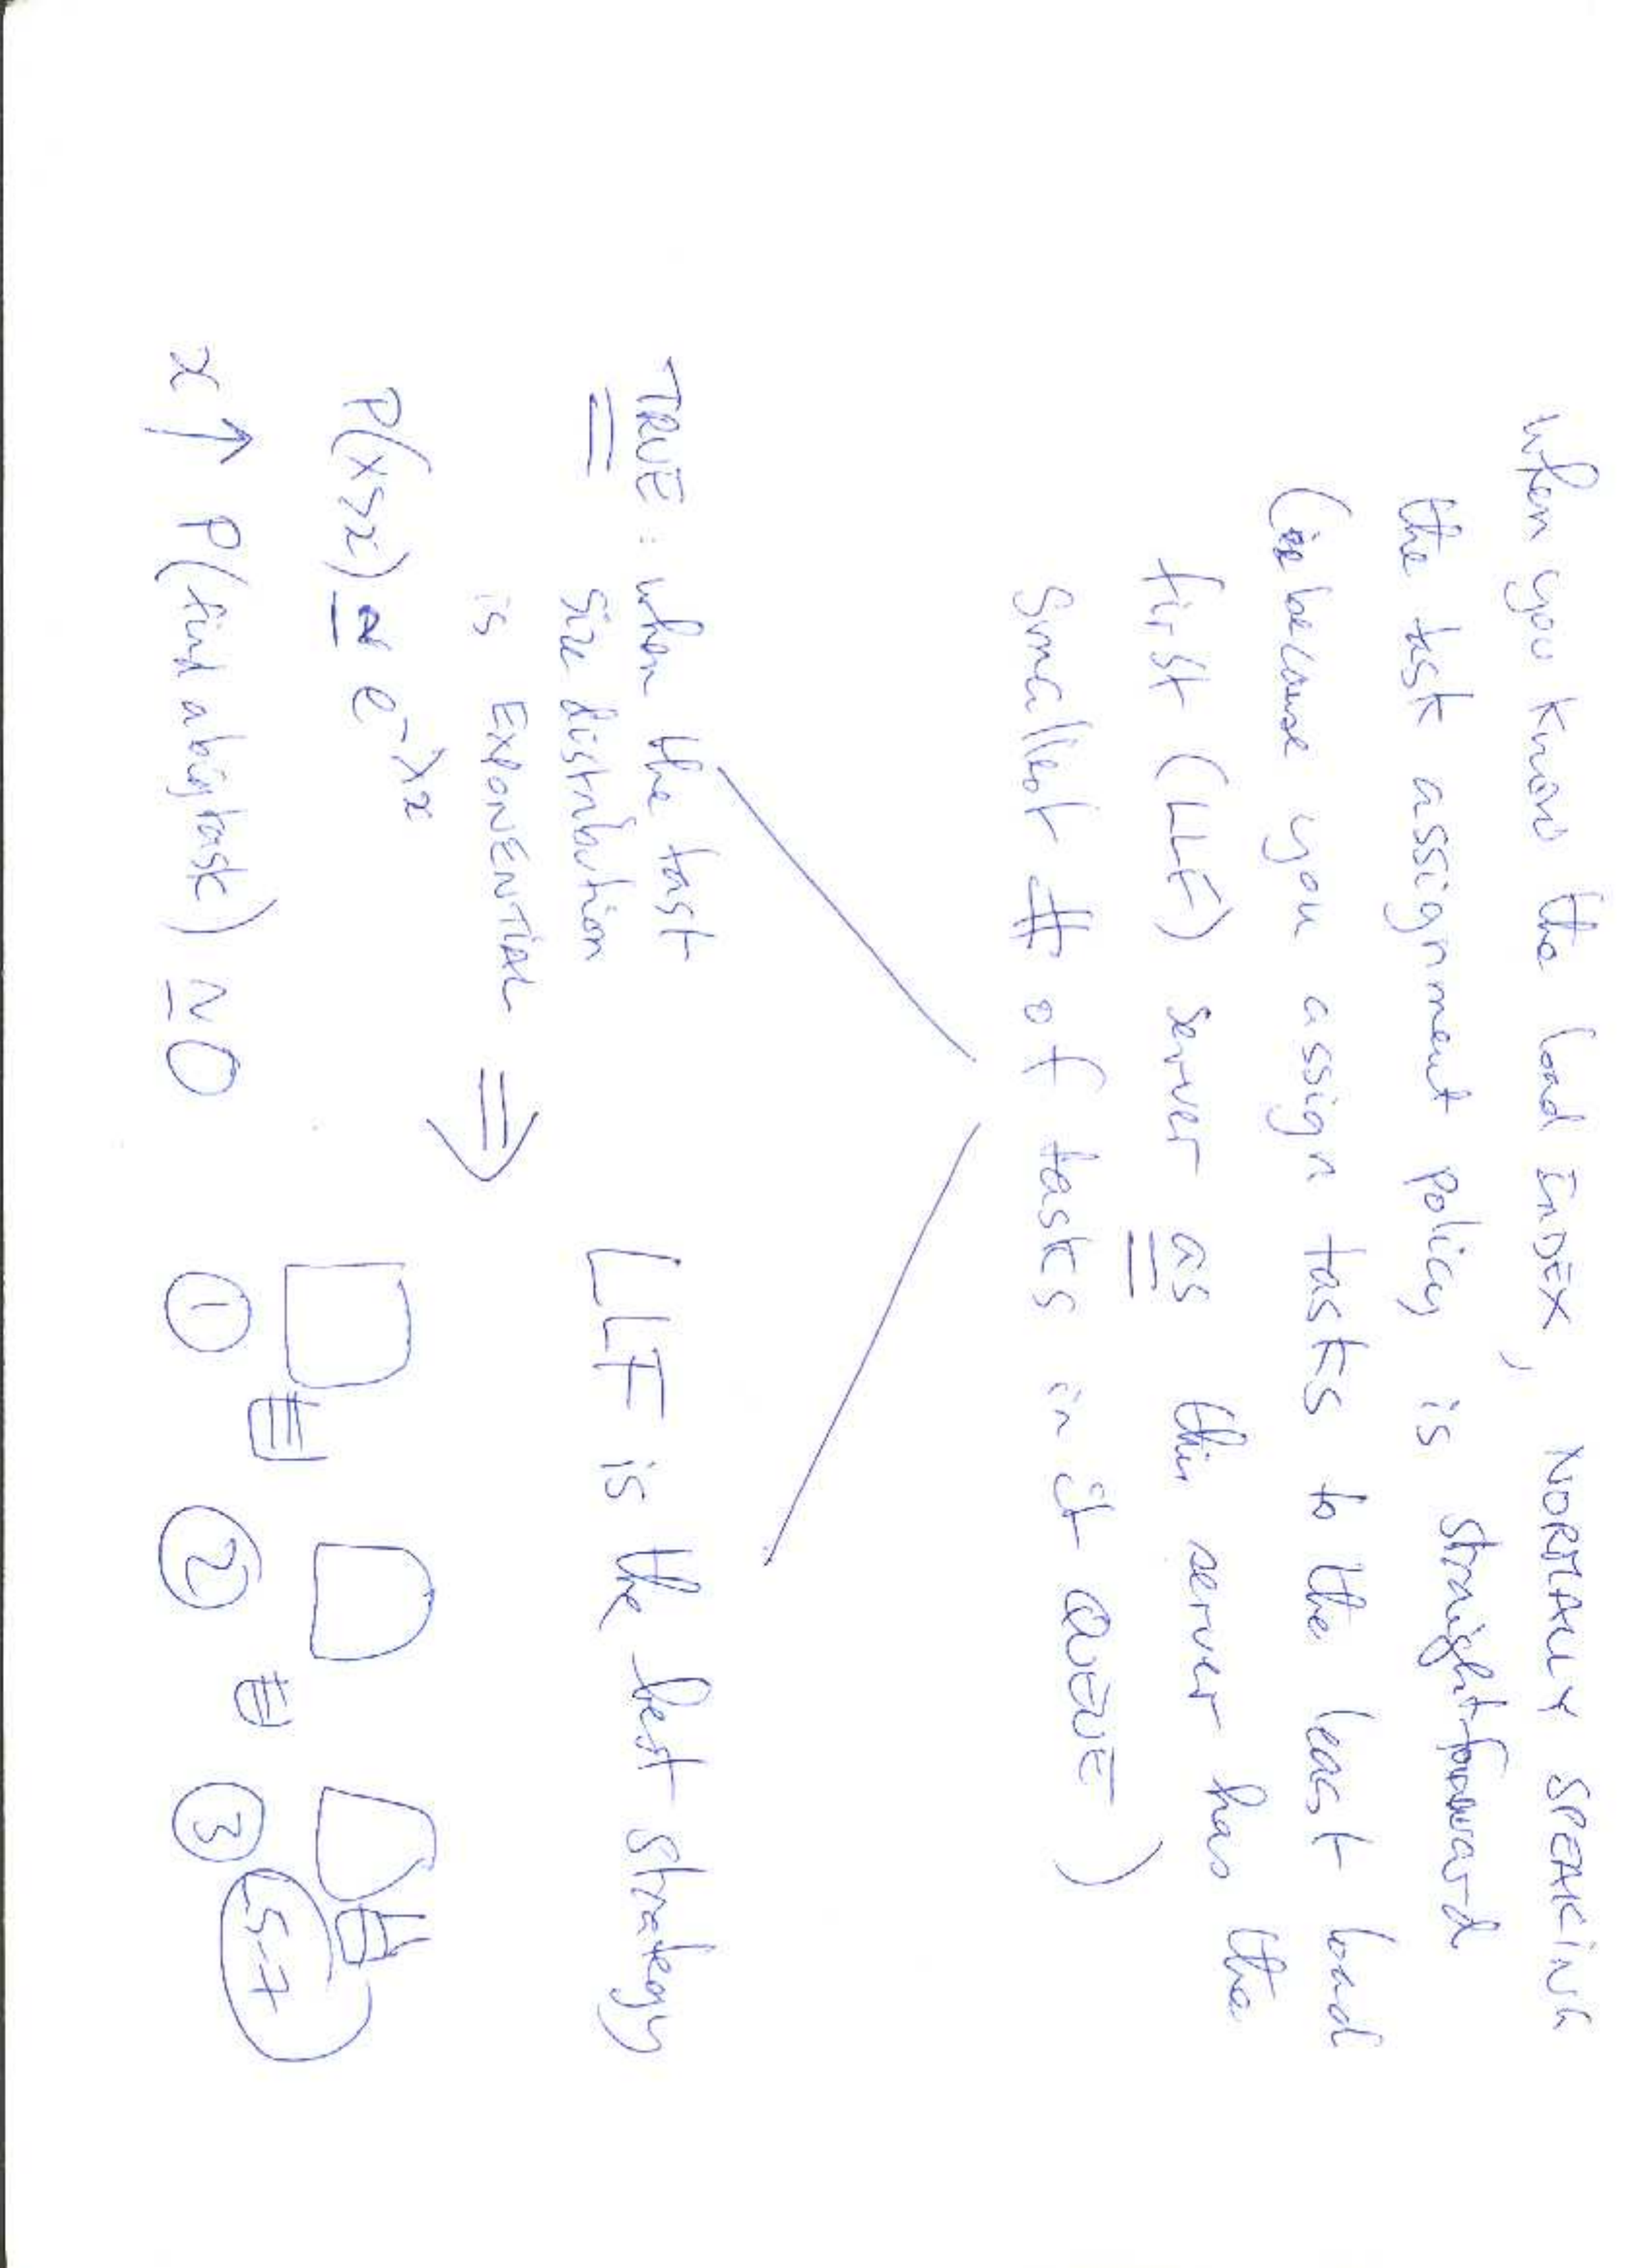 When you know the load INDEX, NORMALLY SPEAKING
the task assignment policy is straightforward
(is because you assign tasks to the least load
first (LLF) server as this server has the
smallest # of tasks in it QUEUE)
TRUE: when the task
size distribution
is EXPONENTIAL
⇒ LLF is the best strategy
P(X>x) ≃ e^-λx
x ↑ P(find a big task) ≃ 0
1 2 3
LS-7